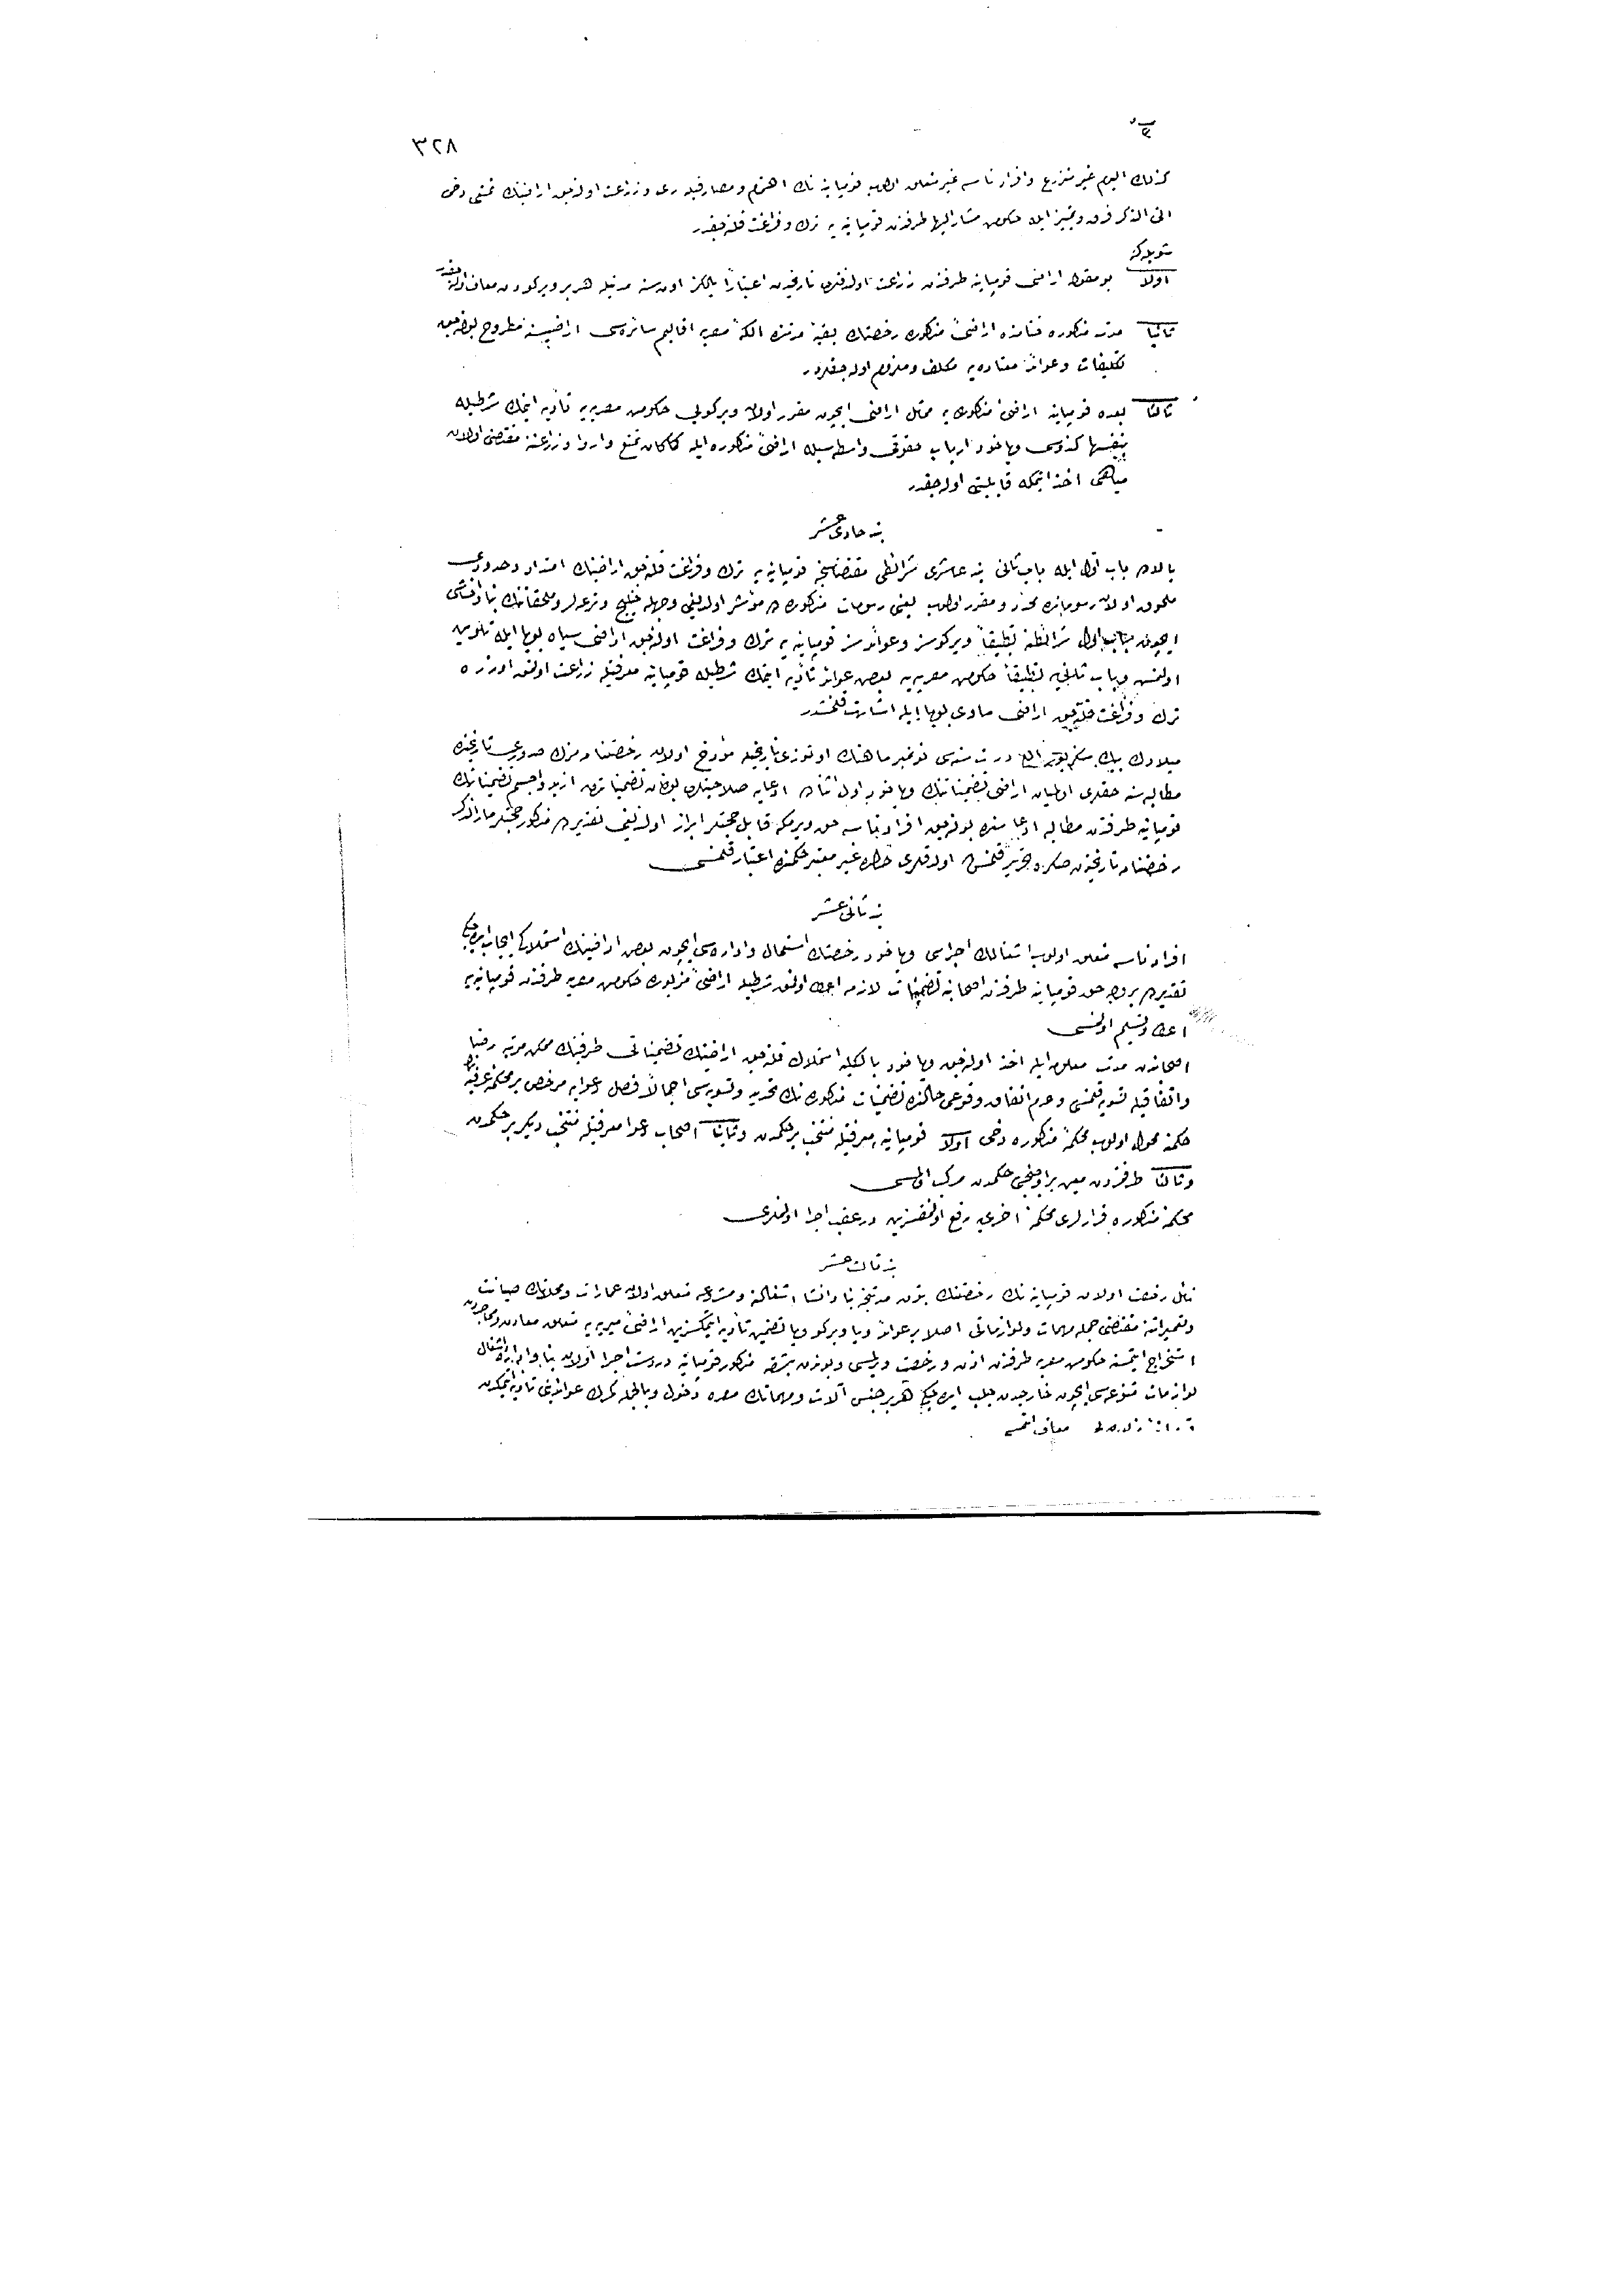 ٣٢٨
كذلك اليوم غير متزرع وافراد ناسه غير متعلق اولوب قومپانيه نك اهتمام ومصارفيله رى وزراعت اولنه جق اراضينك تمتعى دخى
آتى الذكر فرق وتمييز ايله حكومت مشار اليها طرفندن قومپانيه يه ترك وفراغت قلنه جقدر
شويله كه
اولا بو مقوله اراضى قومپانيه طرفندن زراعت اولندقلرى تاريخدن اعتباراً يالكز اون سنه مدتيله هر بر ويركودن معاف اوله جقدر
ثانيا مدت مذكوره ختامنده اراضئ مذكوره رخصتك بقيۀ مدتنده الكۀ مصريه اقاليم سائره سى اراضيسنه مطروح بولنه جق
تكليفات وعوائد معتاده يه مكلف وملزوم اوله جقلردر
ثالثا بعده قومپانيه اراضئ مذكوره يه مماثل اراضى ايچون مقرر اولان ويركويى حكومت مصريه يه تأديه ايتمك شرطيله
بنفسها كندوسى وياخود ارباب حقوقى واسطه سيله اراضئ مذكوره ايله كماكان تمتع واروا وزراعتنه مقتضى اولان
مياهى اخذ ايتمكه قابليتى اوله جقدر
بند حادى عشر
بالاده باب اول ايله باب ثانى بند عاشرى شرائطى مقتضاسنجه قومپانيه يه ترك وفراغت قلنه جق اراضينك امتداد وحدودى
ملحوق اولان رسوماتده محرر ومقرر اولوب يعنى رسومات مذكوره ده مؤشر اولديغى وجهله خليج وترعه لر وملحقاتنك بنا وانشاسى
ايچون باب اول شرائطنه تطبيقاً ويركوسز وعوائدسز قومپانيه يه ترك وفراغت اولنه جق اراضى سياه بويا ايله تلوين
اولنمش وباب ثانى يه تطبيقاً حكومت مصريه يه بعض عوائد تأديه ايتمك شرطيله قومپانيه معرفتيله زراعت اولنمق اوزره
ترك وفراغت قلنه جق اراضى ماوى بويا ايله اشارت قلنمشدر
ميلادك بيك سكز يوز اللى درت سنه سى نومبر ماهنك اوتوزى تاريخيله مؤرخ اولان رخصتنامه نك صدورى تاريخنده
مطالبه سنه حقلرى اولميان اراضى تضميناتنك وياخود اول اثناده ادعايه صلاحيتلرى بولنان تضميناتدن ازيد واجسم تضميناتك
قومپانيه طرفندن مطالبه ادعاسنده بولنه جق افراد ناسه حق ويرمكه قابل حجتلر ابراز اولنديغى تقديرده مذكور حجتلر مار الذكر
رخصتنامه تاريخندن صكره تحرير قلنمش اولدقلرى حالده غير معتبر حكمنده اعتبار قلنمسى
بند ثانى عشر
افراد ناسه متعلق اولوب اشغالك اجراسى وياخود رخصتك استعمال واداره سى ايچون بعض اراضينك استملاكى ايجاب ايده جكى
تقديرده بر وجه حق قومپانيه طرفندن اصحابنه تضمينات لازمه اعطا اولنمق شرطيله اراضئ مزبوره حكومت مصريه طرفندن قومپانيه يه
اعطا وتسليم اولنمسى
اصحابندن مدت معلومه ايله اخذ اولنه جق وياخود بالكليه استملاك قلنه جق اراضينك تضميناتى طرفينك ممكن مرتبه رضا
واتفاقيله تسويه قلنمسى وعدم اتفاق وقوعى حالنده تضمينات مذكوره نك تحديد وتسويه سى اجمالاً فصل دعوايه مرخص بر محكمۀ عرفيه
حكمنه محول اولوب محكمۀ مذكوره دخى اولا قومپانيه معرفتيله منتخب بر حكمدن وثانيا اصحاب دعوا معرفتيله منتخب ديكر بر حكمدن
وثالثا طرفيندن معين بر اوچنجى حكمدن مركب اولمسى
محكمۀ مذكوره قرارلرى محكمۀ اخرايه رفع اولنمقسزين در عقب اجرا اولنملرى
بند ثالث عشر
نائل رخصت اولان قومپانيه نك رخصتنك بتون مدتنجه بنا وانشا اشغالنه ومشروعه متعلق اولان عمارات ومحلاتك صيانت
وتعميراتنه مقتضى جمله مهمات ولوازماتى اصلا بر عوائد ويا ويركو ويا تضمين تأديه ايتمكسزين اراضئ ميريه يه متعلق معادن ومحاجردن
استخراج ايتمسنه حكومت مصريه طرفندن اذن ورخصت ويرلمسى وبوندن بشقه مذكور قومپانيه در دست اجرا اولان بنا واداره اشغال
لوازمات متنوعه سى ايچون خارجدن جلب ايده جكى هر بر جنس آلات ومهماتك مصره دخول وبالجمله كمرك عوائدينى تأديه ايتمكدن
معاف ايتمسى